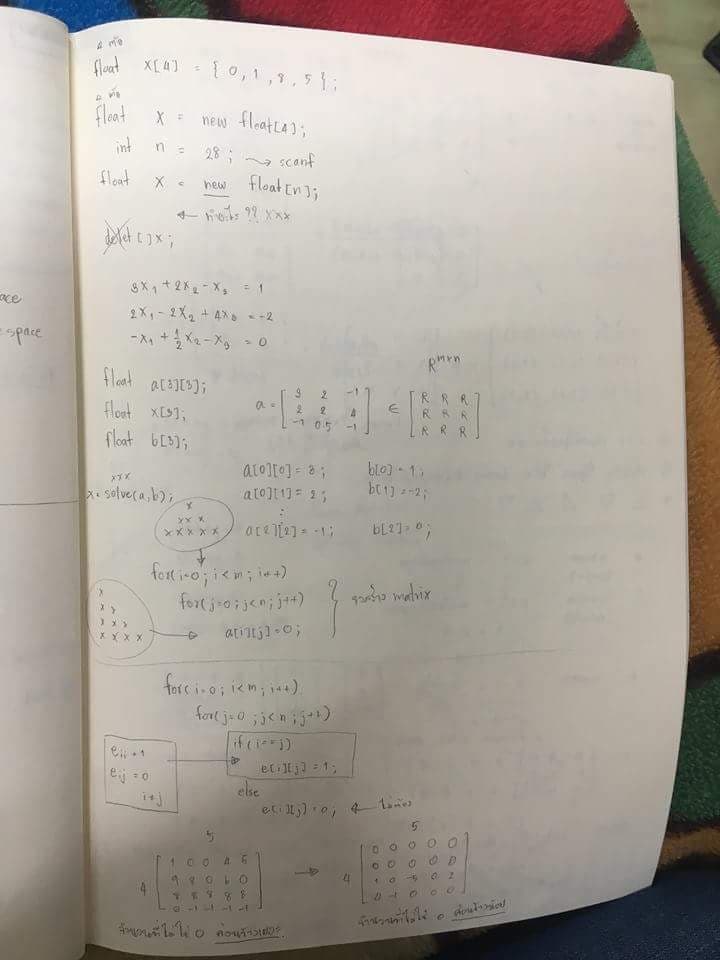 ace
space
4 ตัว
float x[4] = { 0, 1, 8, 5 };
4 ตัว
float x = new float[4];
int n = 28; → scanf
float x = new float[n];
← ทำอะไร ?? xxx
delet []x;
3x₁ + 2x₂ - x₃ = 1
2x₁ - 2x₂ + 4x₃ = -2
-x₁ + ½x₂ - x₃ = 0
float a[3][3];
float x[3];
float b[3];
R^{m×n}
a = [ 3 2 -1 ∈ [ R R R
2 2 4 R R R
-1 0.5 -1 ] R R R ]
xxx
x = solve(a,b);
a[0][0] = 3; b[0] = 1;
a[0][1] = 2; b[1] = -2;
:
a[2][2] = -1; b[2] = 0;
x
x x x
x x x x x
for(i=0; i<m; i++)
for(j=0; j<n; j++)
a[i][j] = 0;
matrix
x
x x
x x x
x x x x
for(i=0; i<m; i++)
for(j=0; j<n; j++)
if(i==j)
e[i][j] = 1;
else
e[i][j] = 0; ← ไม่ต้อง
eᵢᵢ = 1
eᵢⱼ = 0
i≠j
5
4 [ 1 0 0 4 5
9 8 0 6 0
8 8 8 8 8
0 -1 -1 -1 -1 ]
→
5
4 [ 0 0 0 0 0
0 0 0 0 0
1 0 -5 0 2
0 -1 0 0 0 ]
จำนวนที่ไม่ใช่ 0 ค่อนข้างเยอะ
จำนวนที่ไม่ใช่ 0 ค่อนข้างน้อย